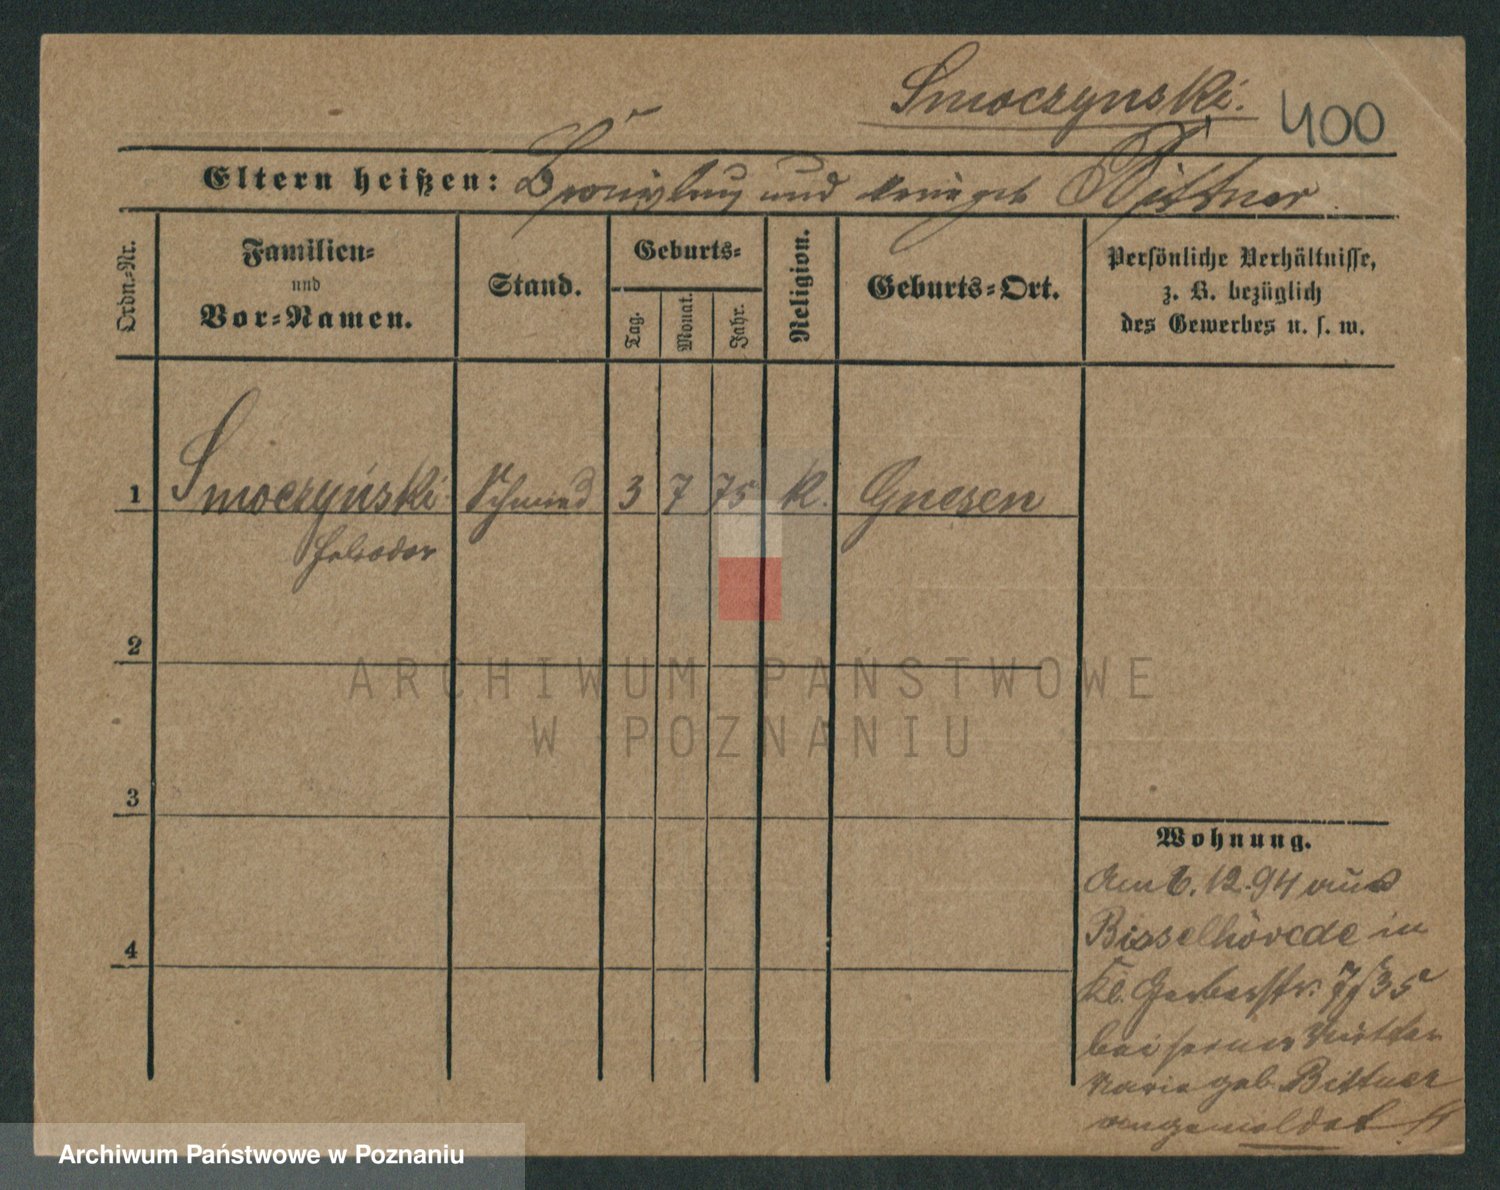 Smoczynski.
400
Eltern heißen: Bronislaus und Bittner
Ordn.-Nr.
Familien-
und
Vor-Namen.
Stand.
Geburts-
Tag.
Monat.
Jahr.
Religion.
Geburts-Ort.
Persönliche Verhältnisse,
z. B. bezüglich
des Gewerbes u. s. w.
1 Smoczyński Schmied 3 7 75 K. Gnesen
2
3
4
Wohnung.
Am 6.12.94 aus
Bisselhövede in
Kl. Gerberstr. 7/35
bei seiner Mutter
Marie geb. Bittner
angemeldet
ARCHIWUM PAŃSTWOWE
W POZNANIU
Archiwum Państwowe w Poznaniu